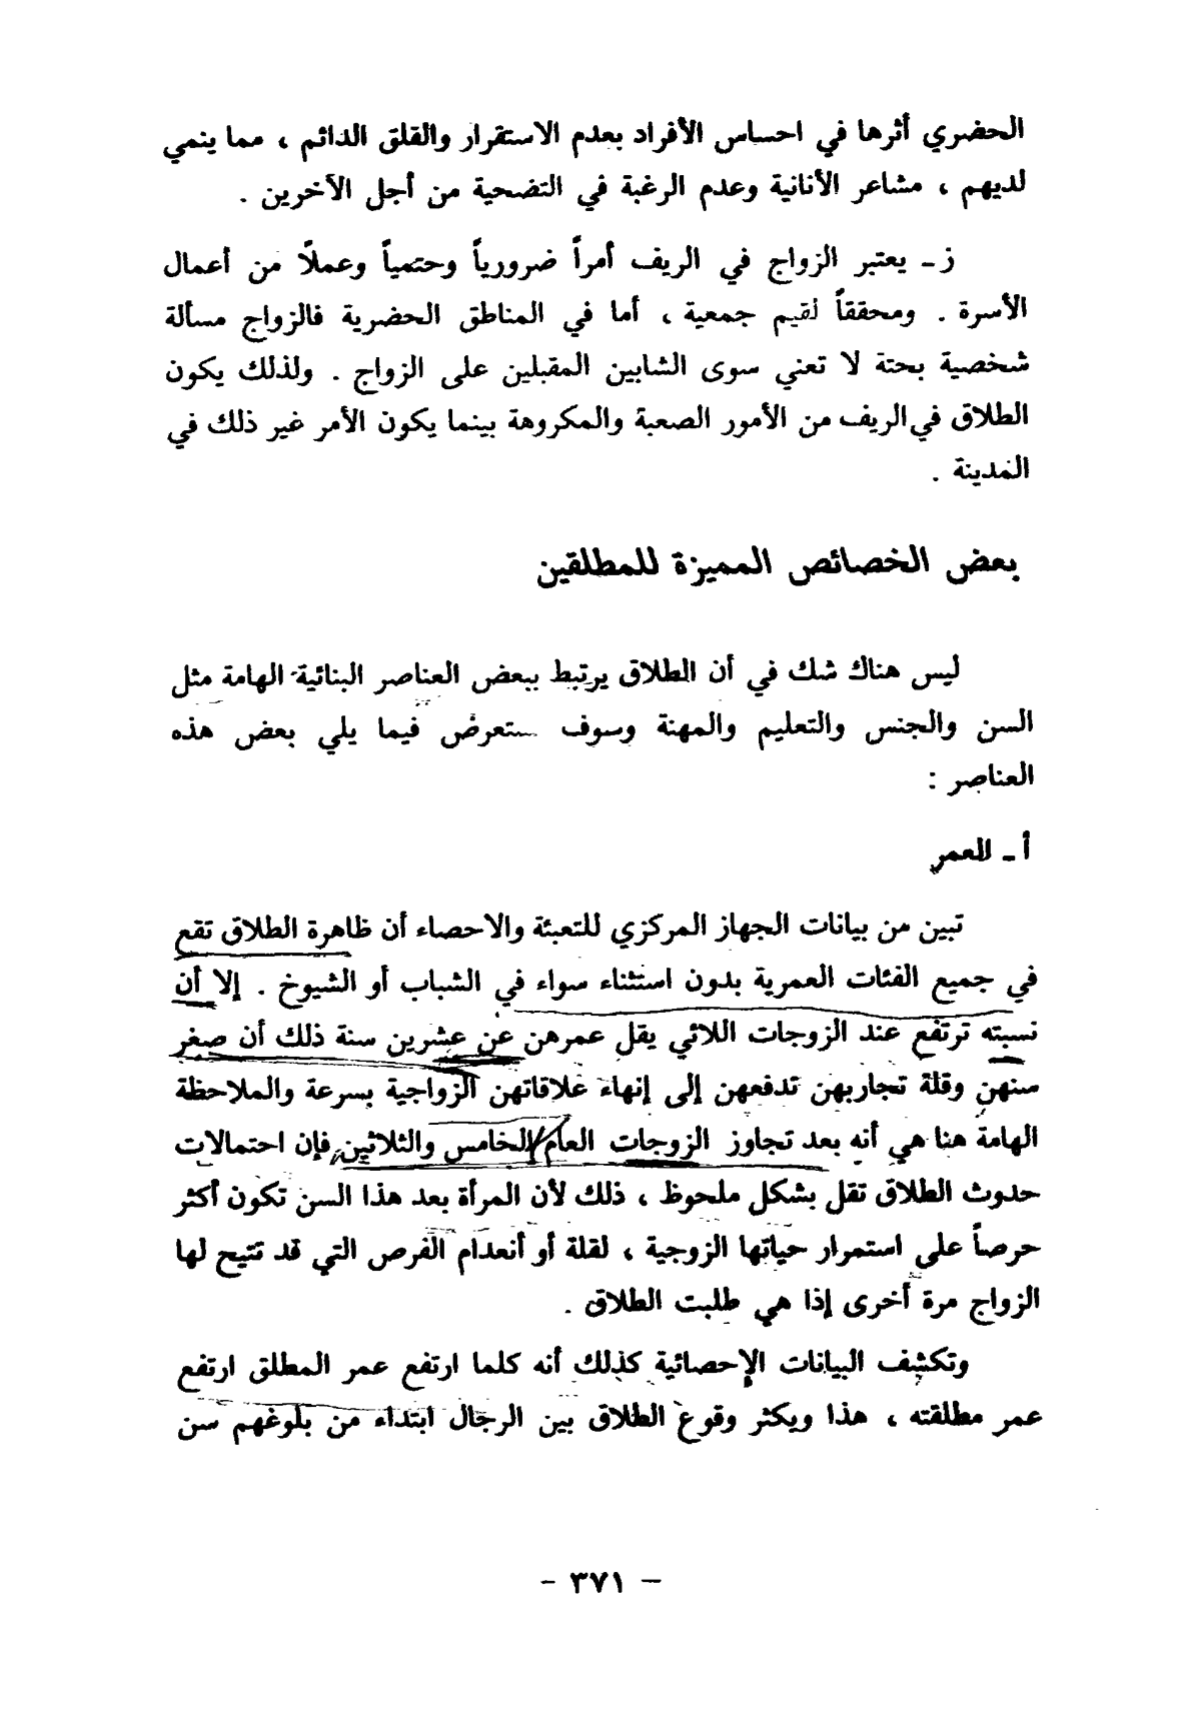 الحضري أثرها في احساس الأفراد بعدم الاستقرار والقلق الدائم ، مما ينمي
لديهم ، مشاعر الأنانية وعدم الرغبة في التضحية من أجل الآخرين .
ز ـ يعتبر الزواج في الريف أمراً ضرورياً وحتمياً وعملاً من أعمال
الأسرة . ومحققاً لقيم جمعية ، أما في المناطق الحضرية فالزواج مسألة
شخصية بحتة لا تعني سوى الشابين المقبلين على الزواج . ولذلك يكون
الطلاق في الريف من الأمور الصعبة والمكروهة بينما يكون الأمر غير ذلك في
المدينة .
بعض الخصائص المميزة للمطلقين
ليس هناك شك في أن الطلاق يرتبط ببعض العناصر البنائية الهامة مثل
السن والجنس والتعليم والمهنة وسوف ستعرض فيما يلي بعض هذه
العناصر :
أ ـ العمر
تبين من بيانات الجهاز المركزي للتعبئة والاحصاء أن ظاهرة الطلاق تقع
في جميع الفئات العمرية بدون استثناء سواء في الشباب أو الشيوخ . إلا أن
نسبته ترتفع عند الزوجات اللائي يقل عمرهن عن عشرين سنة ذلك أن صغر
سنهن وقلة تجاربهن تدفعهن إلى إنهاء علاقاتهن الزواجية بسرعة والملاحظة
الهامة هنا هي أنه بعد تجاوز الزوجات العام الخامس والثلاثين فإن احتمالات
حدوث الطلاق تقل بشكل ملحوظ ، ذلك لأن المرأة بعد هذا السن تكون أكثر
حرصاً على استمرار حياتها الزوجية ، لقلة أو أنعدام الفرص التي قد تتيح لها
الزواج مرة أخرى إذا هي طلبت الطلاق .
وتكشف البيانات الإحصائية كذلك أنه كلما ارتفع عمر المطلق ارتفع
عمر مطلقته ، هذا ويكثر وقوع الطلاق بين الرجال ابتداء من بلوغهم سن
- ٣٧١ -